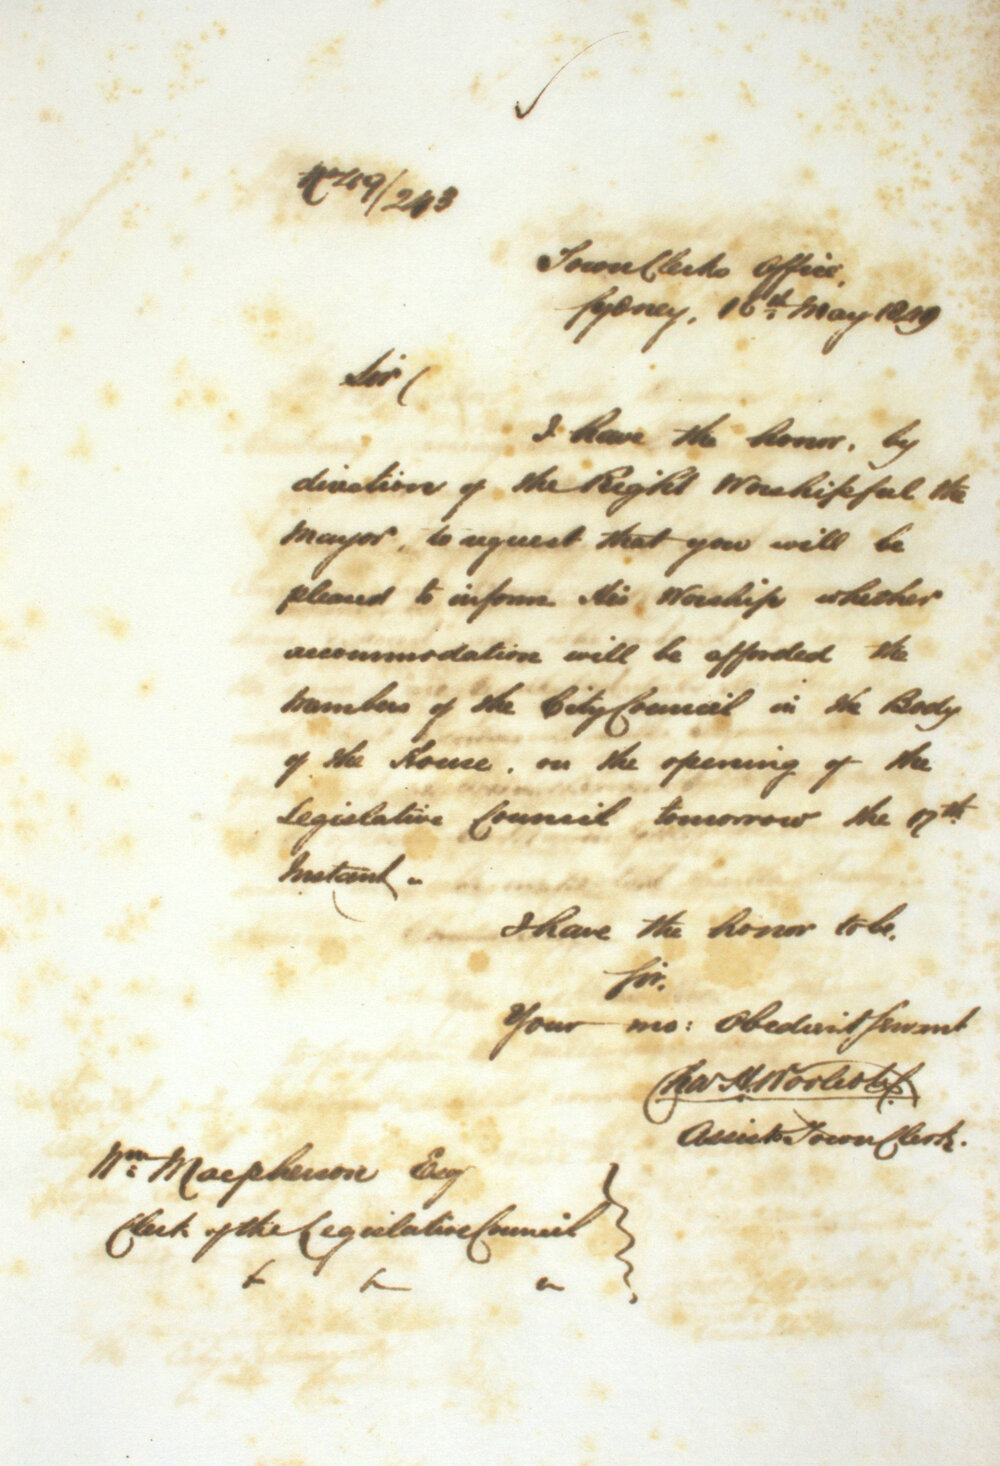 No 49/243
Town Clerks Office,
Sydney, 16th May 1849
Sir
I have the honor, by
direction of the Right Worshipful the
Mayor, to request that you will be
pleased to inform His Worship whether
accommodation will be afforded the
members of the City Council in the Body
of the House, on the opening of the
Legislative Council tomorrow the 17th
Instant.
I have the honor to be,
Sir,
Your mo: Obedient Servant
Chas H. Woolcott
Assist. Town Clerk.
Wm Macpherson Esq
Clerk of the Legislative Council